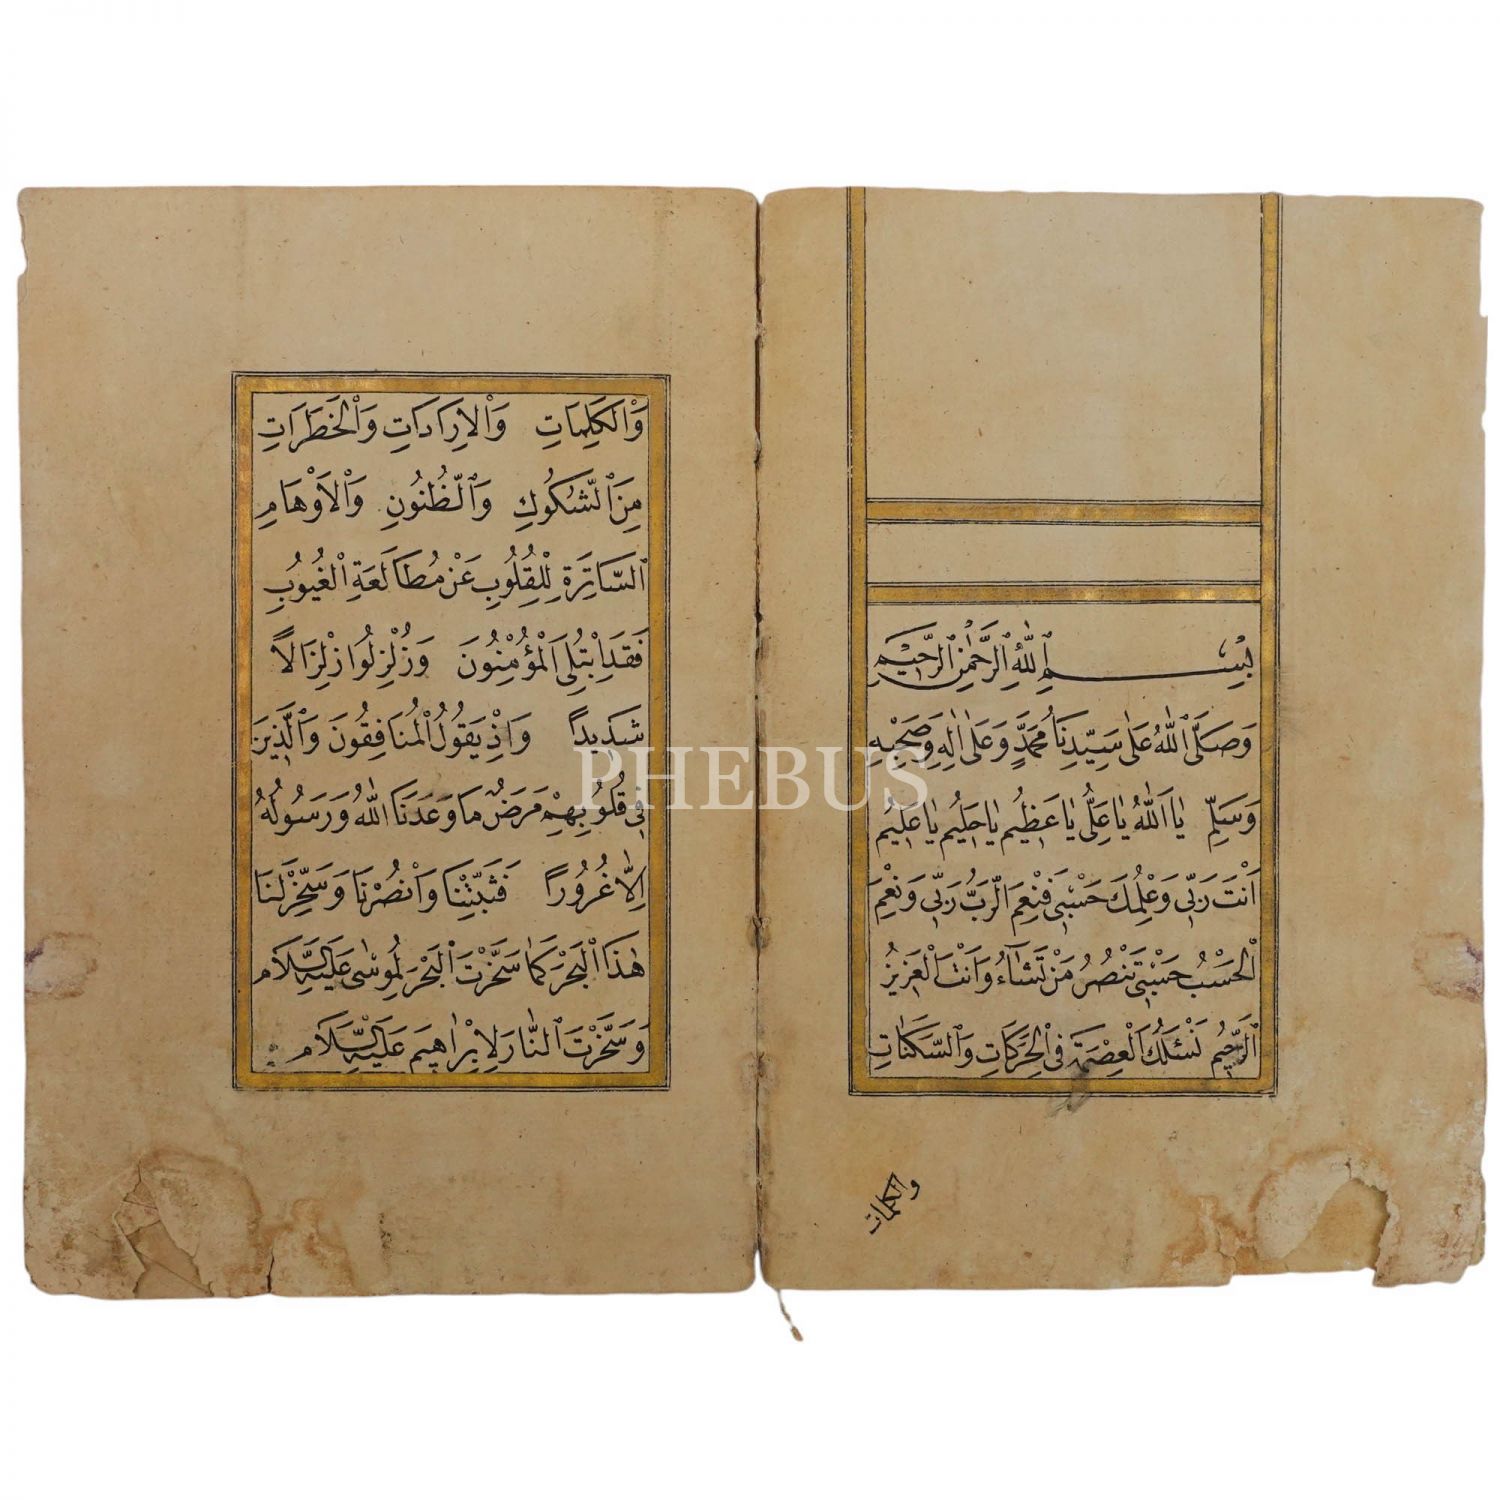 بِسْمِ اللّٰهِ الرَّحْمٰنِ الرَّحِيْمِ
وَصَلَّى اللّٰهُ عَلٰى سَيِّدِنَا مُحَمَّدٍ وَعَلٰى اٰلِهِ وَصَحْبِهِ
وَسَلِّمْ يٰا اَللّٰهُ يٰا عَلِيُّ يٰا عَظِيْمُ يٰا حَلِيْمُ يٰا عَلِيْمُ
اَنْتَ رَبِّى وَعِلْمُكَ حَسْبِى فَنِعْمَ الرَّبُّ رَبِّى وَنِعْمَ
الْحَسْبُ حَسْبِى تَنْصُرُ مَنْ تَشَٓاءُ وَاَنْتَ الْعَزِيْزُ
الرَّحِيْمُ نَسْئَلُكَ الْعِصْمَةَ فِى الْحَرَكَاتِ وَالسَّكَنَاتِ
والكلمات
وَالْكَلِمَاتِ وَالْاِرَادَاتِ وَالْخَطَرَاتِ
مِنَ الشُّكُوكِ وَالظُّنُونِ وَالْاَوْهَامِ
السَّاتِرَةِ لِلْقُلُوبِ عَنْ مُطَالَعَةِ الْغُيُوبِ
فَقَدِ ابْتُلِىَ الْمُؤْمِنُونَ وَزُلْزِلُوا زِلْزَالًا
شَدِيدًا وَاِذْ يَقُولُ الْمُنَافِقُونَ وَالَّذِينَ
فِى قُلُوبِهِمْ مَرَضٌ مَا وَعَدَنَا اللّٰهُ وَرَسُولُهُ
اِلَّا غُرُورًا فَثَبِّتْنَا وَانْصُرْنَا وَسَخِّرْ لَنَا
هٰذَا الْبَحْرَ كَمَا سَخَّرْتَ الْبَحْرَ لِمُوسٰى عَلَيْهِ السَّلَام
وَسَخَّرْتَ النَّارَ لِاِبْرَاهِيمَ عَلَيْهِ السَّلَام
PHEBUS